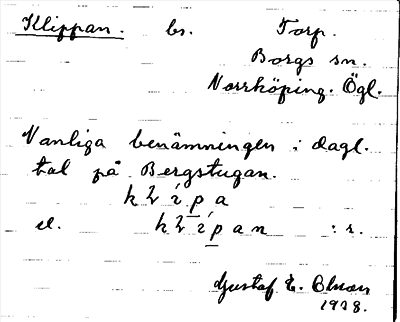 Klippan. bs. Torp.
Borgs sn.
Norrköping. Ögl.
Vanliga benämningen i dagl.
tal på Bergstugan.
klípa
el. klípan : s.
Gustaf E.
1928.